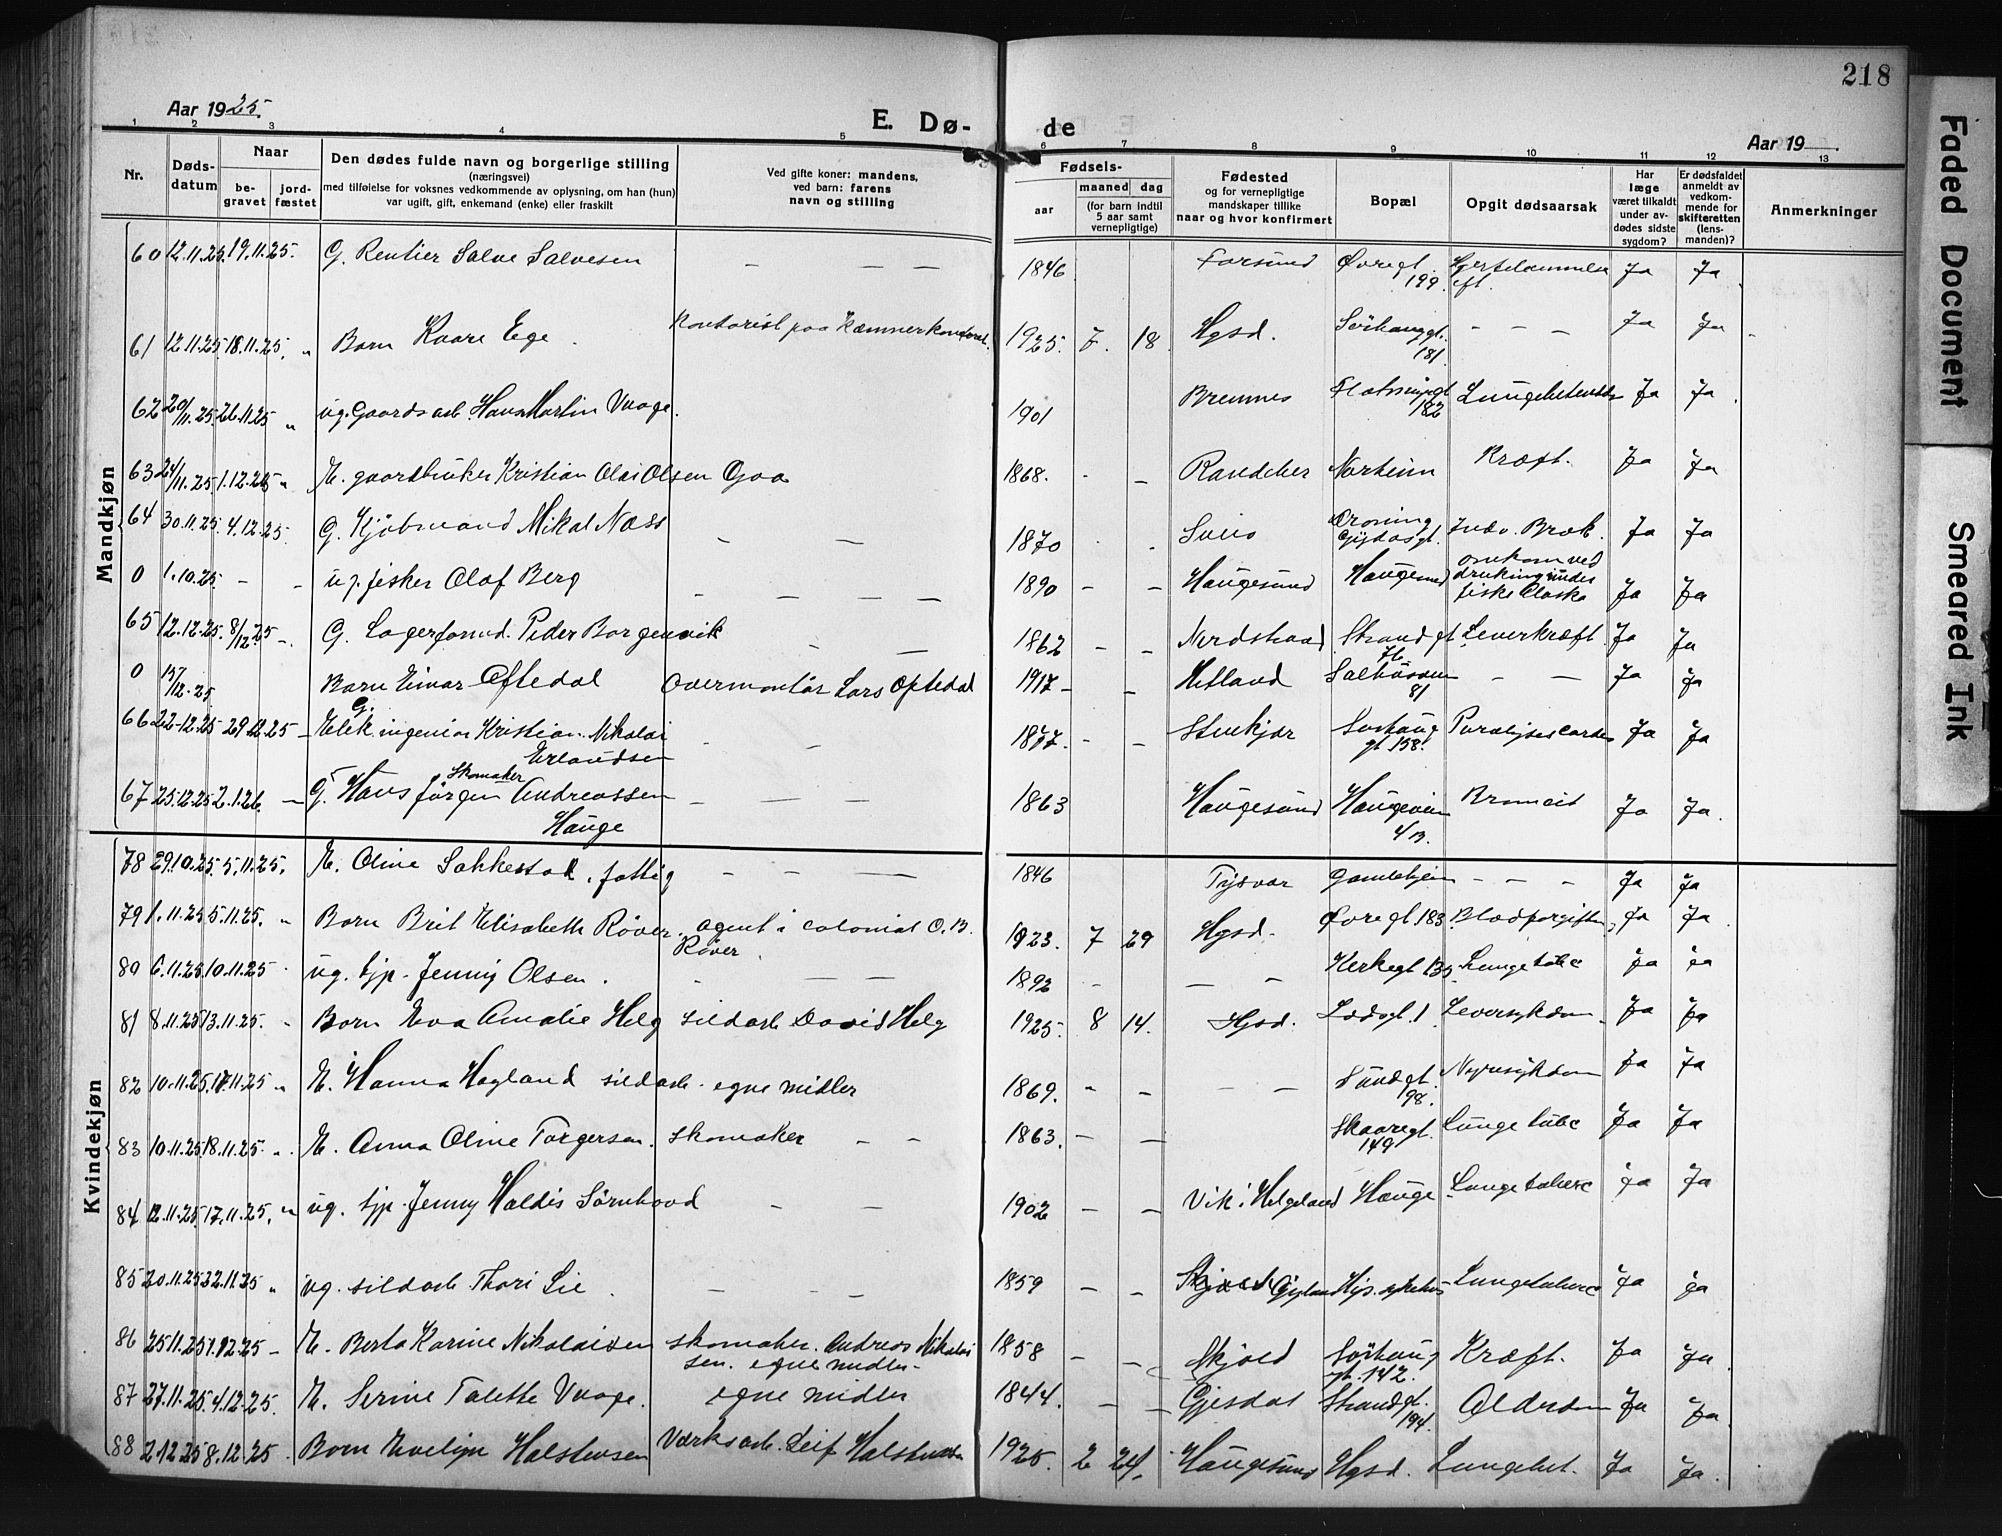 218
Aar 1925.
E. Dø- de
Aar 19
1 2 3 4 5 6 7 8 9 10 11 12 13
Nr.
Døds-
datum
Naar
be-
gravet
jord-
fæstet
Den dødes fulde navn og borgerlige stilling
(næringsvei)
med tilføielse for voksnes vedkommende av oplysning, om han (hun)
var ugift, gift, enkemand (enke) eller fraskilt
Ved gifte koner: mandens,
ved barn: farens
navn og stilling
Fødsels-
aar
maaned
dag
(for barn indtil
5 aar samt
vernepligtige)
Fødested
og for vernepligtige
mandskaper tillike
naar og hvor konfirmert
Bopæl
Opgit dødsaarsak
Har
læge
været tilkaldt
under av-
dødes sidste
sygdom?
Er dødsfaldet
anmeldt av
vedkom-
mende for
skifteretten
(lens-
manden)?
Anmerkninger
Mandkjøn
60 12.11.25. 19.11.25. G. Rentier Salve Salvesen — — — 1846 Farsund Øvregt. 199. Ja Ja
61 12.11.25. 18.11.25. " Barn Kaare Ege. Kontorist paa Kæmnerkontoret. 1925. 7. 18. Hgsd. Sørhauggt. 181 – – – Ja Ja
62 20/11.25. 26.11.25 " ug. Gaardsarb. Hans Martin Vaage. 1901 Bremnes 182 Lungebetendelse Ja Ja
63 24/11.25 1.12.25 " E. gaardbruker Kristian Olai Olsen Goa 1868. - – Norheim Kræft. Ja Ja
64 30.11.25. 4.12.25. G. Kjøbmand Mikal Næss – — — 1870 Sveio Dronning Gydasgt. Indv. Brok. Ja Ja
0 1.10.25. - - ug. fisker Olaf Berg – — — — 1890 – – Haugesund Haugesund omkom ved drukning under fiske Alaska Ja Ja
65 12.12.25. 8/12.25 -. G. Lagerformd. Peder Borgenvik 1862 – – Nerdstrand Strandgt. 76 Leverkræft Ja Ja
0 15/12.25 Barn Einar Oftedal Overmontør Lars Oftedal 1917 – – Hetland Salhusvn 81 – – Ja Ja
66 22.12.25 29.12.25 – G. Elek. ingeniør Kristian Nikolai Erlandsen 1877. – – Stenkjær Sørhaug gt 158. Ja Ja
67 25.12.25 2.1.26. – G. Skomaker Hans Jørgen Andreassen Hauge — — — 1863 Haugesund Haugeveien 4 B. Ja Ja.
Kvindekjøn
78 29.10.25. 5.11.25. E. Oline Sakkestad. fattig — — — 1846 Tysvær Gamlehjem – – – Ja Ja
79 1.11.25 5.11.25. " Barn Brit Elisabeth Røver. agent i colonial O. B. Røver. 1923. 7 29 Hgsd. Øvregt 183. Blodforgiftn. Ja Ja
80 6.11.25 10.11.25. ug. tjp. Jenny Olsen. – — — 1892 – — – Kirkegt 135 Lungetube Ja Ja
81 8.11.25 13.11.25. " Barn Eva Amalie Helg sildarb David Helg 1925. 8 14. Hgsd. 1 Leversykdom. Ja Ja
82 10.11.25. 17.11.25 " E. Hanna Hagland sildarb. egne midler 1869. – – — — Sundgt. 98. Nyresykdom Ja Ja
83 10.11.25. 18.11.25. ". E. Anna Oline Torgersen. Skomaker — — 1863. – – Skaaregt. 149 Lunge tube Ja Ja
84 12.11.25. 17.11.25. " ug. tjp. Jenny Haldis — — 1902 – – Vik i Helgeland Hauge Lunge tuberc Ja Ja
85 20.11.25 22.11.25 " ug. sildarb Thori Lie. — – – 1859 – – Hgs. sykehus Lungetuberc Ja Ja
86 25.11.25 1.12.25 – E. Berta Karine Nikolaisen skomaker. Andreas Nikolai sen. egne midler. 1858 – – Skjold Sørhaug gt. 142. Kræft. Ja Ja
87 27.11.25. 4.12.25. E. Serine Talette Vaage. egne midler 1844. – – Gjesdal Strandgt. 194. Alderdom Ja Ja.
88 2.12.25 8.12.25. Barn Evelyn Halstensen Værksarb. Leif Halstensen 1925. 2 24. Haugesund Hgsd. Lungebet. Ja Ja.
Faded Document
Smeared Ink